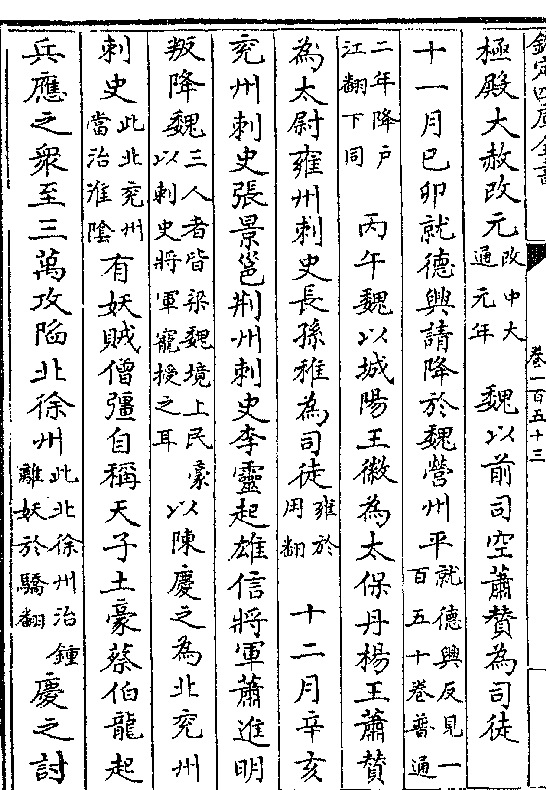 欽定四庫全書 卷一百五十三
極殿大赦改元改中大通元年 魏以前司空蕭賛為司徒
十一月已卯就德興請降於魏營州平就德興反見一百五十卷普通
二年降户江翻下同 丙午魏以城陽王徽為太保丹楊王蕭賛
為太尉雍州刺史長孫稚為司徒雍於用翻 十二月辛亥
兖州刺史張景邕荆州刺史李靈起雄信將軍蕭進明
叛降魏三人者皆梁魏境上民豪以刺史將軍寵授之耳以陳慶之為北兖州
刺史此北兖州當治淮隂有妖賊僧彊自稱天子土豪蔡伯龍起
兵應之衆至三萬攻陷北徐州此北徐州治鍾離妖於驕翻慶之討